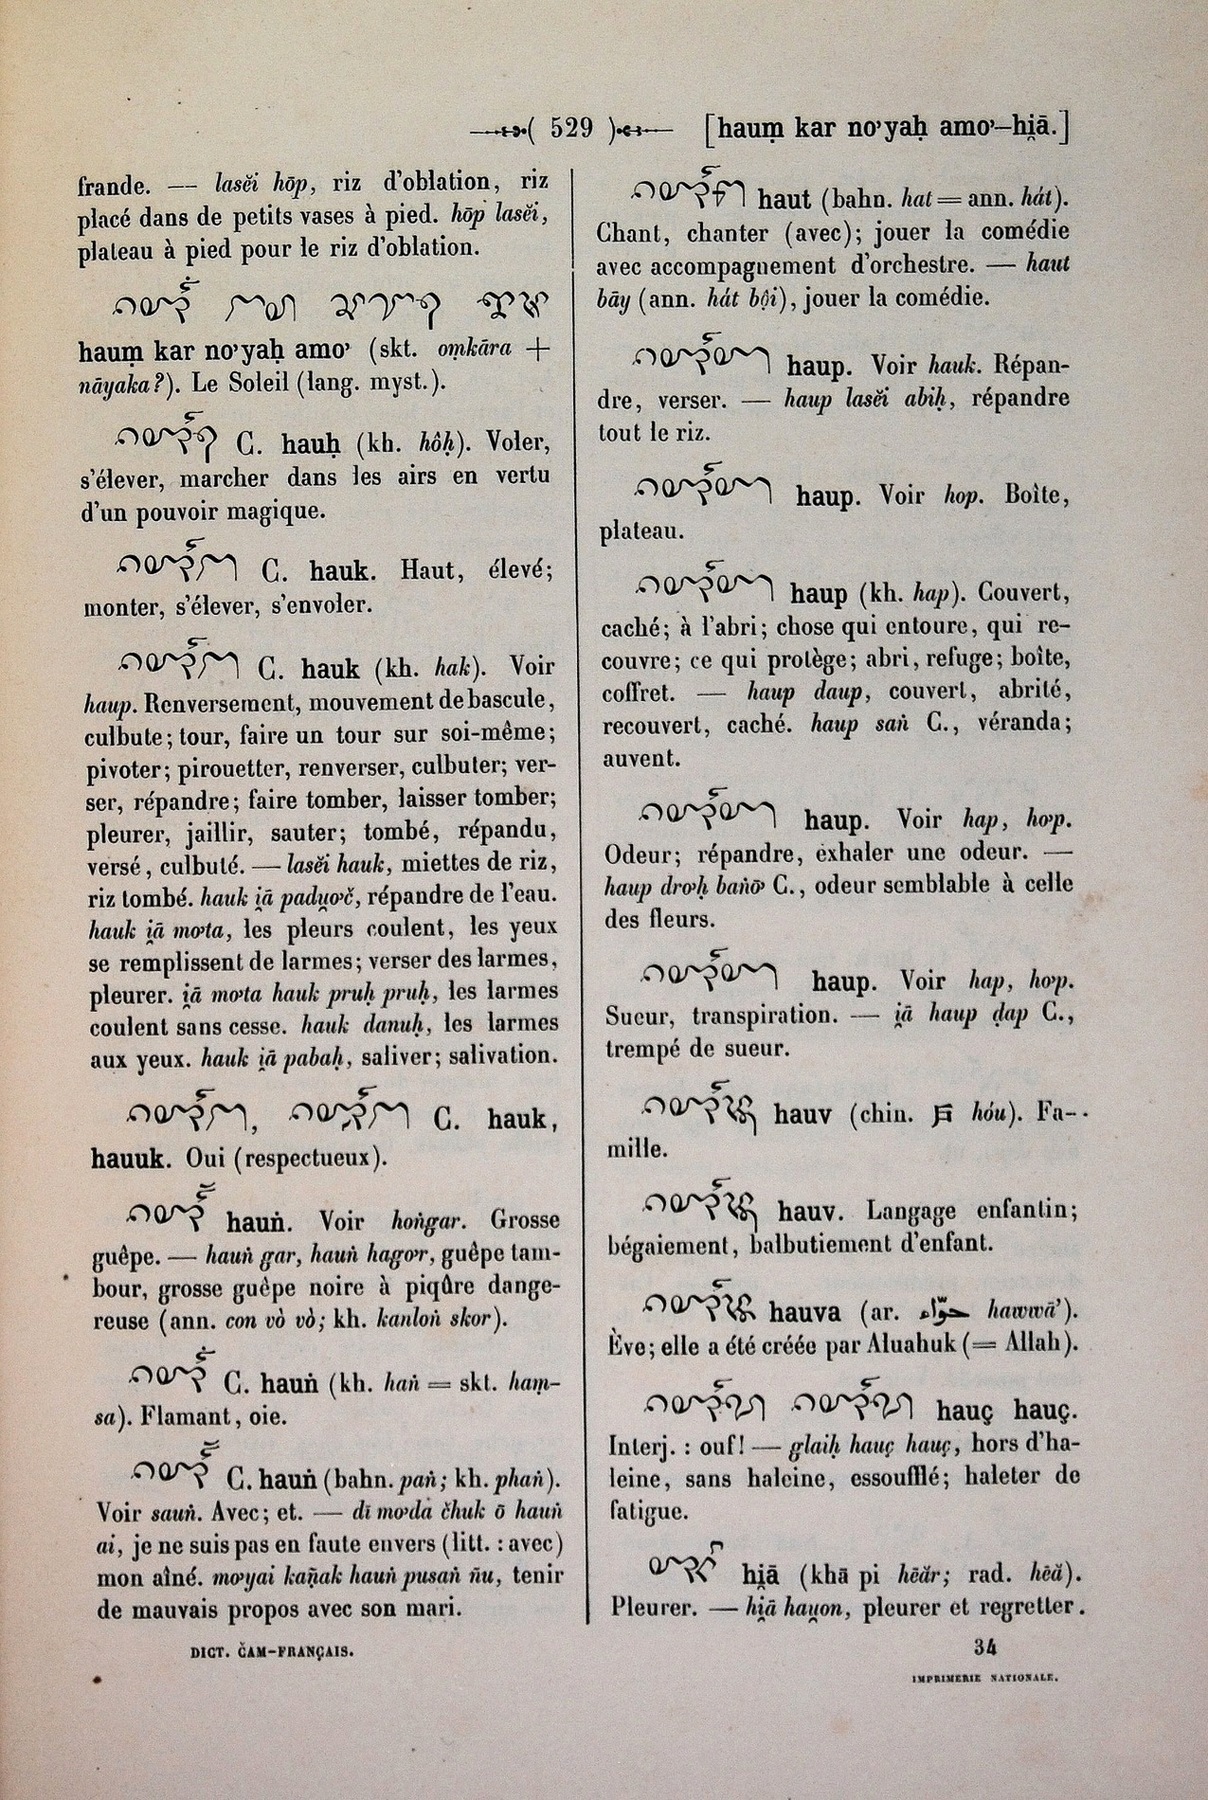 ( 529 ) [hauṃ kar no̓yaḥ amo̓–hi̯ā.]
frande. — lasĕi hōp, riz d'oblation, riz
placé dans de petits vases à pied. hōp lasĕi,
plateau à pied pour le riz d'oblation.
hauṃ kar no̓yaḥ amo̓ (skt. oṃkāra +
nāyaka?). Le Soleil (lang. myst.).
C. hauḥ (kh. hôḥ). Voler,
s'élever, marcher dans les airs en vertu
d'un pouvoir magique.
C. hauk. Haut, élevé;
monter, s'élever, s'envoler.
C. hauk (kh. hak). Voir
haup. Renversement, mouvement de bascule,
culbute; tour, faire un tour sur soi-même;
pivoter; pirouetter, renverser, culbuter; ver-
ser, répandre; faire tomber, laisser tomber;
pleurer, jaillir, sauter; tombé, répandu,
versé, culbuté. — lasĕi hauk, miettes de riz,
riz tombé. hauk i̯ā padu̯o̓č, répandre de l'eau.
hauk i̯ā mo̓ta, les pleurs coulent, les yeux
se remplissent de larmes; verser des larmes,
pleurer. i̯ā mo̓ta hauk pruḥ pruḥ, les larmes
coulent sans cesse. hauk danuḥ, les larmes
aux yeux. hauk i̯ā pabaḥ, saliver; salivation.
C. hauk,
hauuk. Oui (respectueux).
hauṅ. Voir hoṅgar. Grosse
guêpe. — hauṅ gar, hauṅ hago̓r, guêpe tam-
bour, grosse guêpe noire à piqûre dange-
reuse (ann. con vò vò; kh. kanloṅ skor).
C. hauṅ (kh. haṅ = skt. haṃ-
sa). Flamant, oie.
C. hauṅ (bahn. paṅ; kh. phaṅ).
Voir sauṅ. Avec; et. — dī mo̓da čhuk ō hauṅ
ai, je ne suis pas en faute envers (litt. : avec)
mon aîné. mo̓yai kaṇ̃ak hauṅ pusaṅ ñu, tenir
de mauvais propos avec son mari.
DICT. ČAM-FRANÇAIS.
haut (bahn. hat = ann. hát).
Chant, chanter (avec); jouer la comédie
avec accompagnement d'orchestre. — haut
bāy (ann. hát bội), jouer la comédie.
haup. Voir hauk. Répan-
dre, verser. — haup lasĕi abiḥ, répandre
tout le riz.
haup. Voir hop. Boîte,
plateau.
haup (kh. hap). Couvert,
caché; à l'abri; chose qui entoure, qui re-
couvre; ce qui protège; abri, refuge; boîte,
coffret. — haup daup, couvert, abrité,
recouvert, caché. haup saṅ C., véranda;
auvent.
haup. Voir hap, ho̓p.
Odeur; répandre, exhaler une odeur. —
haup dro̓ḥ baṅō̓ C., odeur semblable à celle
des fleurs.
haup. Voir hap, ho̓p.
Sueur, transpiration. — i̯ā haup ḍap C.,
trempé de sueur.
hauv (chin. hóu). Fa-
mille.
hauv. Langage enfantin;
bégaiement, balbutiement d'enfant.
hauva (ar. حوّاء hawwā').
Ève; elle a été créée par Aluahuk (= Allah).
hauç hauç.
Interj. : ouf! — glaiḥ hauç hauç, hors d'ha-
leine, sans haleine, essoufflé; haleter de
fatigue.
hi̯ā (khā pi hĕăr; rad. hĕă).
Pleurer. — hi̯ā hau̯on, pleurer et regretter.
34
IMPRIMERIE NATIONALE.